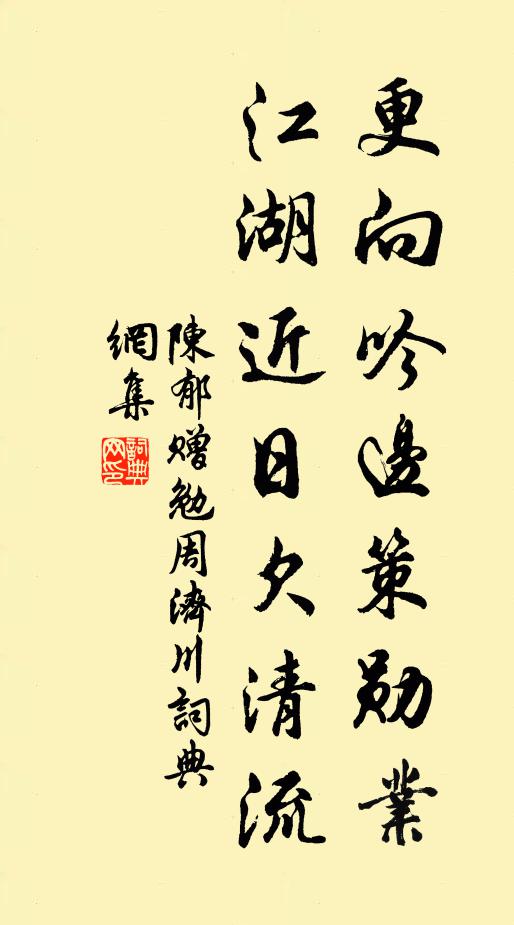 更向吟邊策勛業
江湖近日欠清流
陳郁贈勉周濟川詞典
網集
詞典
网印